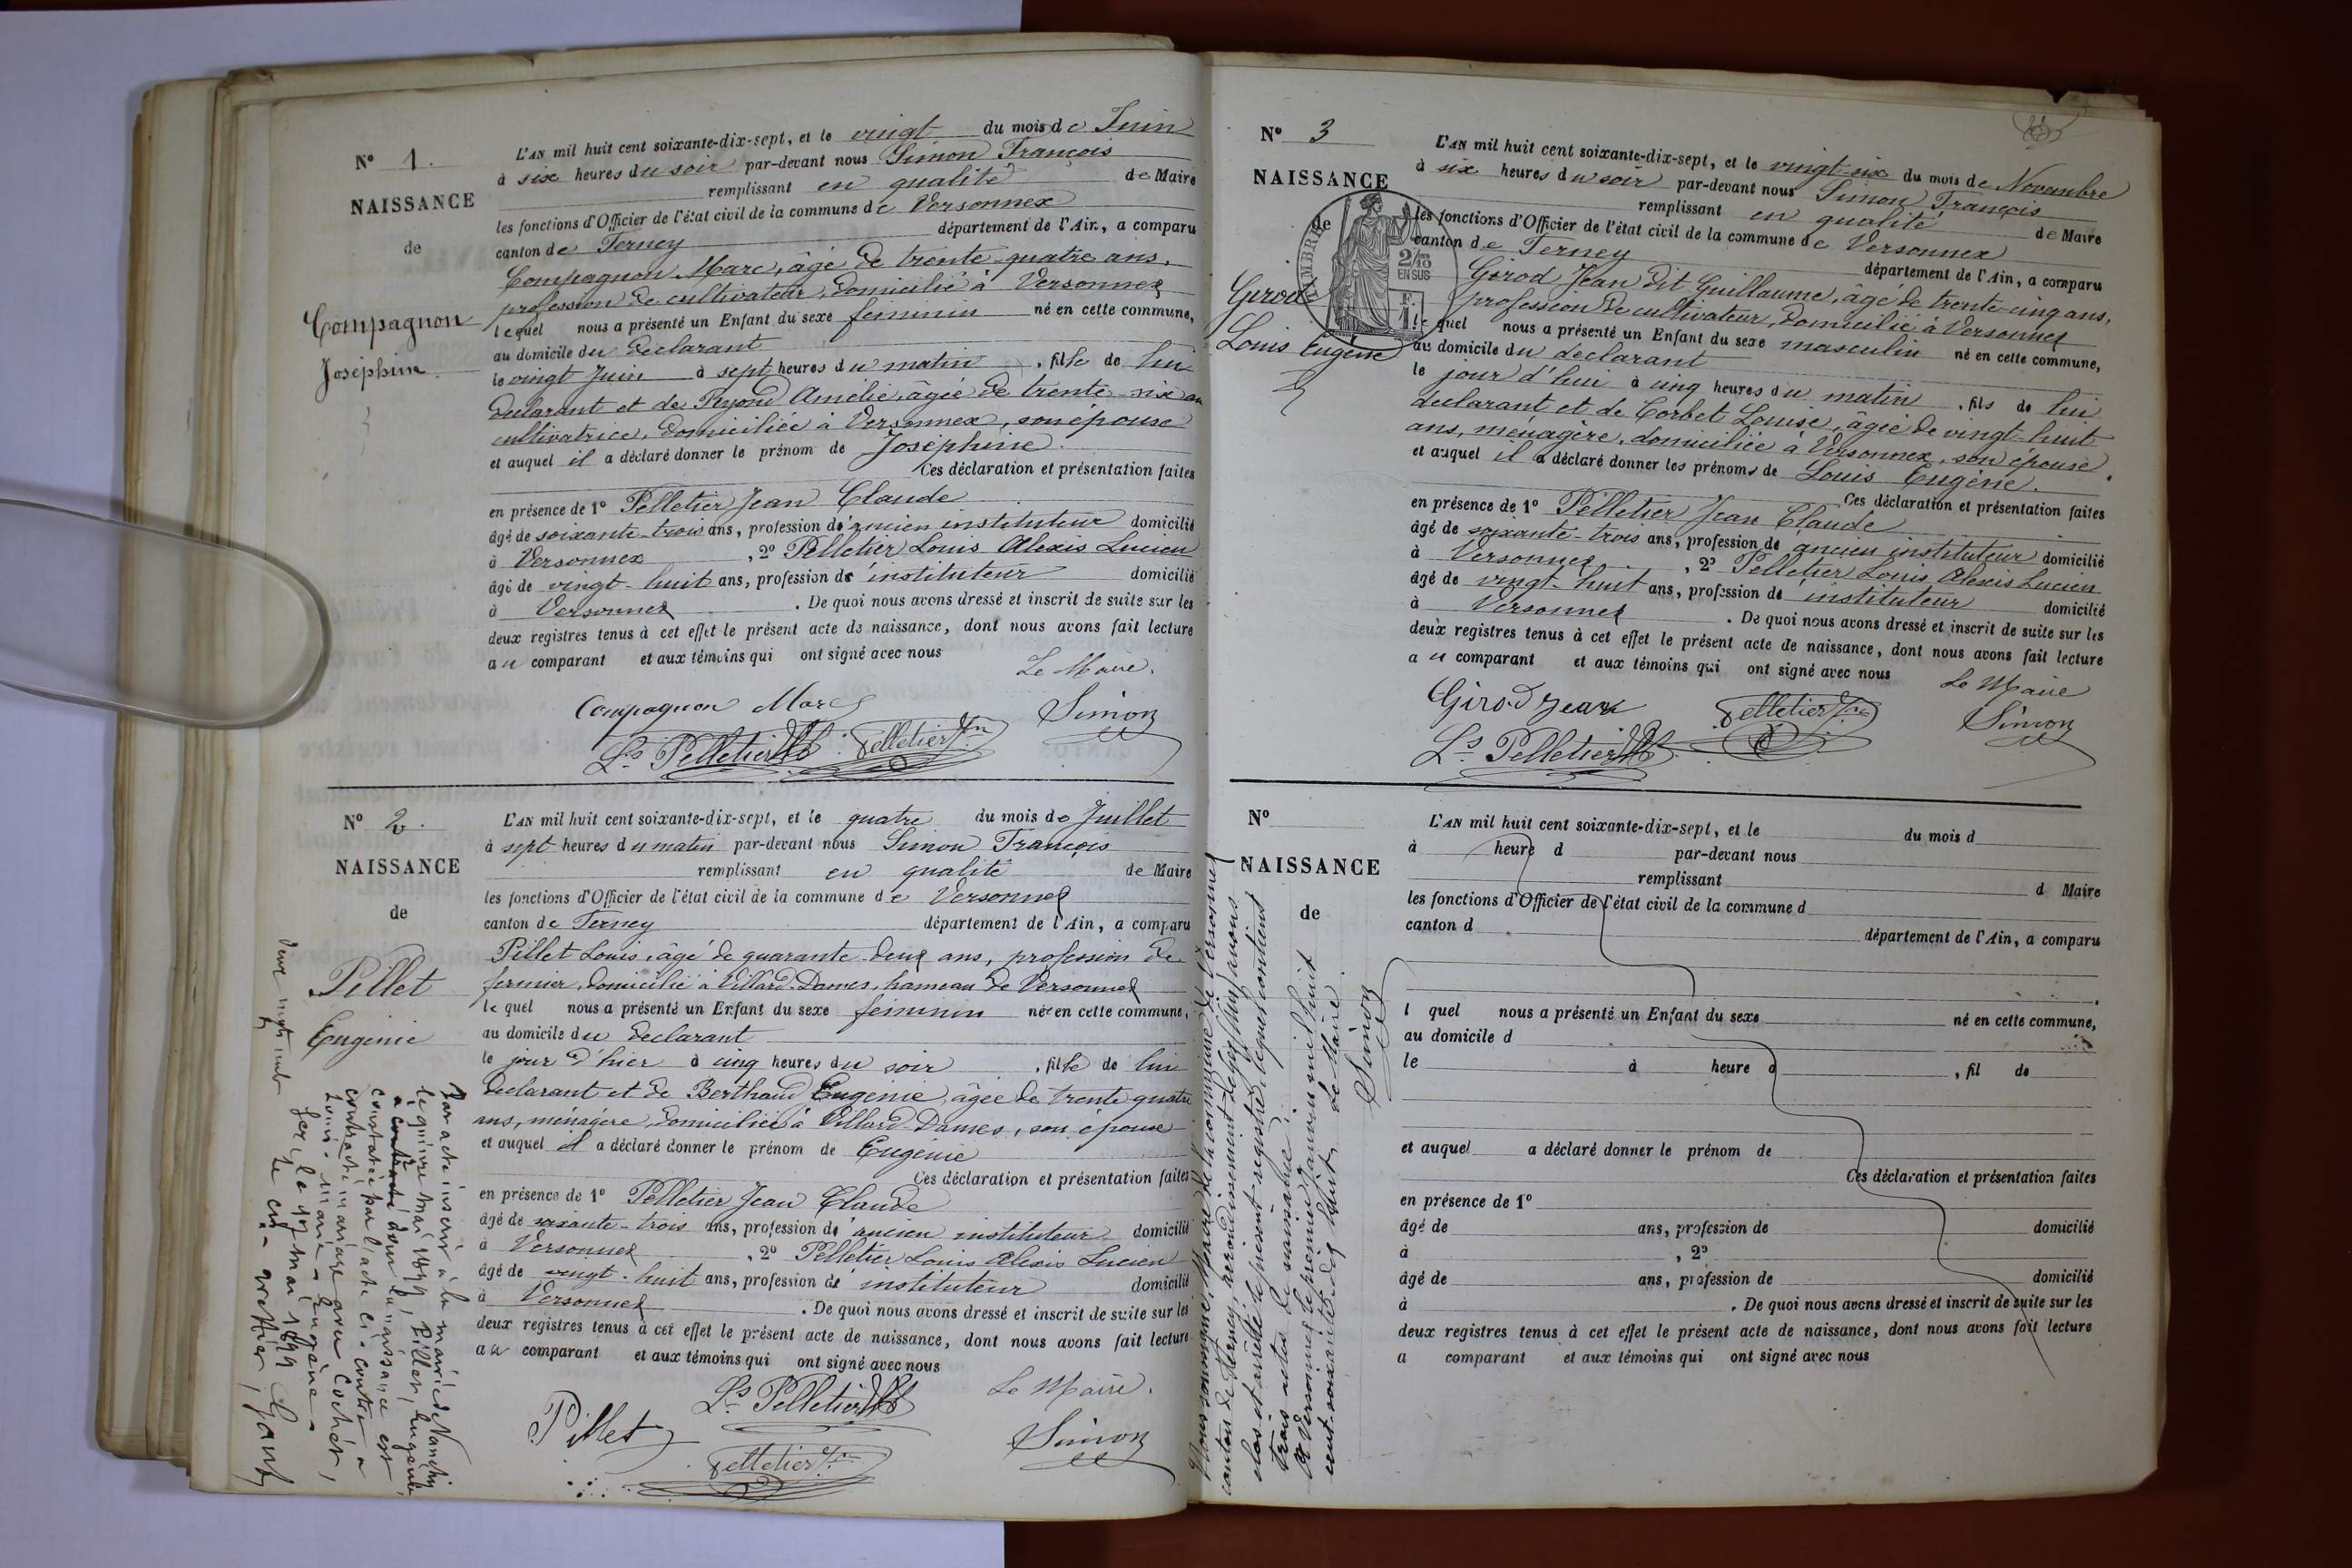 N° 1.
NAISSANCE
de
Compagnon
Joséphine
L'AN mil huit cent soixante-dix-sept, et le vingt du mois de Juin
à six heures du soir par-devant nous Simon François
remplissant en qualité de Maire
les fonctions d'Officier de l'état civil de la commune de Versonnex
canton de Ferney département de l'Ain, a comparu
Compagnon Marc, âgé de trente-quatre ans,
profession de cultivateur, domicilié à Versonnex
lequel nous a présenté un Enfant du sexe feminin né en cette commune,
au domicile du declarant
le vingt Juin à sept heures du matin, fille de lui
declarant et de Amélie, âgée de trente-six ans
cultivatrice, domiciliée à Versonnex, son épouse
et auquel il a déclaré donner le prénom de Joséphine.
Ces déclaration et présentation faites
en présence de 1° Pelletier Jean Claude
âgé de soixante-trois ans, profession de ancien instituteur domicilié
à Versonnex, 2° Pelletier Louis Alexis Lucien
âgé de vingt-huit ans, profession de instituteur domicilié
à Versonnex. De quoi nous avons dressé et inscrit de suite sur les
deux registres tenus à cet effet le présent acte de naissance, dont nous avons fait lecture
au comparant et aux témoins qui ont signé avec nous
Le Maire.
Compagnon Marc
Simon
Ls Pelletier Pelletier Jn
N° 2.
NAISSANCE
de
Pillet
Eugénie
L'AN mil huit cent soixante-dix-sept, et le quatre du mois de Juillet
à sept heures du matin par-devant nous Simon François
remplissant en qualité de Maire
les fonctions d'Officier de l'état civil de la commune de Versonnex
canton de Ferney département de l'Ain, a comparu
Pillet Louis, âgé de quarante-deux ans, profession de
fermier, domicilié à Villard-Dames, hameau de Versonnex
lequel nous a présenté un Enfant du sexe feminin née en cette commune,
au domicile du declarant
le jour d'hier à cinq heures du soir, fille de lui
declarant et de Berthaud Eugénie, âgée de trente quatre
ans, ménagère, domiciliée à Villard-Dames, son épouse
et auquel il a déclaré donner le prénom de Eugénie
Ces déclaration et présentation faites
en présence de 1° Pelletier Jean Claude
âgé de soixante-trois ans, profession de ancien instituteur domicilié
à Versonnex, 2° Pelletier Louis Alexis Lucien
âgé de vingt-huit ans, profession de instituteur domicilié
à Versonnex. De quoi nous avons dressé et inscrit de suite sur les
deux registres tenus à cet effet le présent acte de naissance, dont nous avons fait lecture
au comparant et aux témoins qui ont signé avec nous
Le Maire.
Pillet
Ls Pelletier
Simon
Pelletier Jn
Par acte inscrit à la mairie de
le quinze mai 1899, Pillet, Eugénie,
a contracté dont la naissance est
constatée par l'acte ci-contre a
contracté mariage avec Cochet,
Louis-Marie-Eugène-
Gex, le 17 mai 1899
Le cis-greffier,
N° 3
NAISSANCE
de
2/10
EN SUS
Girod
Louis Eugène
L'AN mil huit cent soixante-dix-sept, et le vingt-six du mois de Novembre
à six heures du soir par-devant nous Simon François
remplissant en qualité de Maire
les fonctions d'Officier de l'état civil de la commune de Versonnex
canton de Ferney département de l'Ain, a comparu
Girod Jean dit Guillaume, âgé de trente-cinq ans,
profession de cultivateur, domicilié à Versonnex
lequel nous a présenté un Enfant du sexe masculin né en cette commune,
au domicile du declarant
le jour d'hui à cinq heures du matin, fils de lui
declarant et de Corbet Louise, âgée de vingt-huit
ans, ménagère, domiciliée à Versonnex, son épouse
et auquel il a déclaré donner les prénoms de Louis Eugène.
Ces déclaration et présentation faites
en présence de 1° Pelletier Jean Claude
âgé de soixante-trois ans, profession de ancien instituteur domicilié
à Versonnex, 2° Pelletier Louis Alexis Lucien
âgé de vingt-huit ans, profession de instituteur domicilié
à Versonnex. De quoi nous avons dressé et inscrit de suite sur les
deux registres tenus à cet effet le présent acte de naissance, dont nous avons fait lecture
au comparant et aux témoins qui ont signé avec nous
Le Maire
Girod Jean
Pelletier Jn
Simon
Ls Pelletier
Nous soussigné, Maire de la commune de Versonnex
canton de Ferney, arrondissement de Gex (Ain) avons
clos et arrêté le présent registre lequel contient
trois actes de naissance.
A Versonnex le premier Janvier mil huit
cent soixante-dix-huit. Le Maire.
Simon
N°
NAISSANCE
de
L'AN mil huit cent soixante-dix-sept, et le du mois d
à heure d par-devant nous
remplissant d Maire
les fonctions d'Officier de l'état civil de la commune d
canton d département de l'Ain, a comparu
l quel nous a présenté un Enfant du sexe né en cette commune,
au domicile d
le à heure d, fil de
et auquel a déclaré donner le prénom de
Ces déclaration et présentation faites
en présence de 1°
âgé de ans, profession de domicilié
à, 2°
âgé de ans, profession de domicilié
à. De quoi nous avons dressé et inscrit de suite sur les
deux registres tenus à cet effet le présent acte de naissance, dont nous avons fait lecture
a comparant et aux témoins qui ont signé avec nous